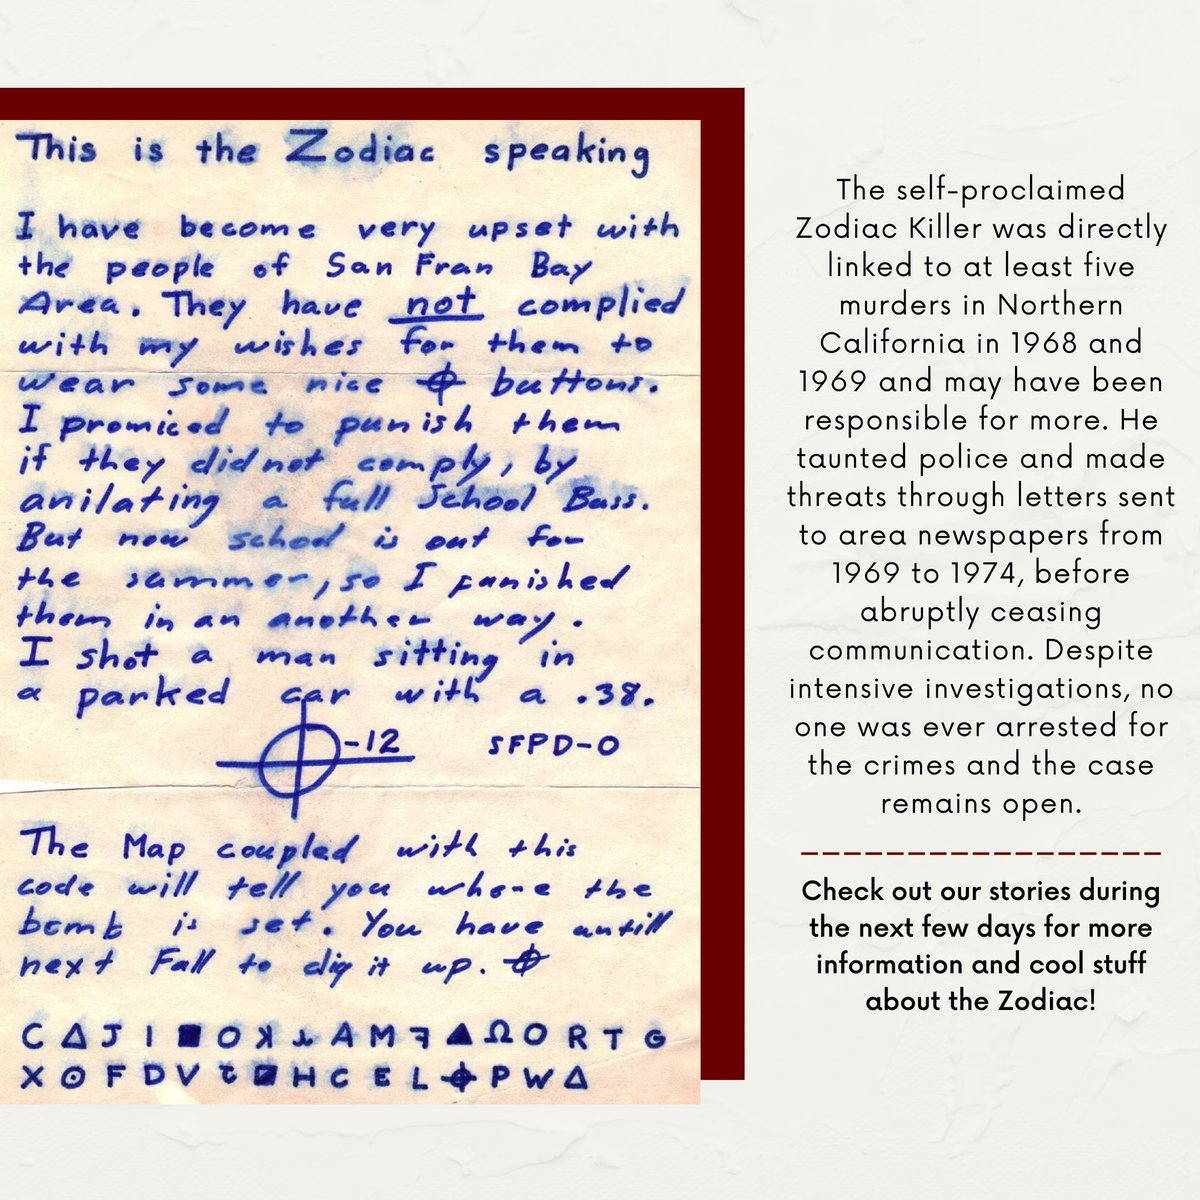 This is the Zodiac speaking
I have become very upset with
the people of San Fran Bay
Area. They have not complied
with my wishes for them to
wear some nice ⌖ buttons.
I promiced to punish them
if they did not comply, by
anilating a full School Buss.
But now school is out for
the summer, so I punished
them in an another way.
I shot a man sitting in
a parked car with a .38.
⌖-12 SFPD-0
The Map coupled with this
code will tell you whore the
bomb is set. You have untill
next Fall to dig it up. ⌖
C Δ J I ■ O ꓘ ⅄ A M ꟻ ▲ Ω O R T G
X ⊙ F D V Ʇ ◪ H C E L ⌖ P W Δ
The self-proclaimed
Zodiac Killer was directly
linked to at least five
murders in Northern
California in 1968 and
1969 and may have been
responsible for more. He
taunted police and made
threats through letters sent
to area newspapers from
1969 to 1974, before
abruptly ceasing
communication. Despite
intensive investigations, no
one was ever arrested for
the crimes and the case
remains open.
Check out our stories during
the next few days for more
information and cool stuff
about the Zodiac!